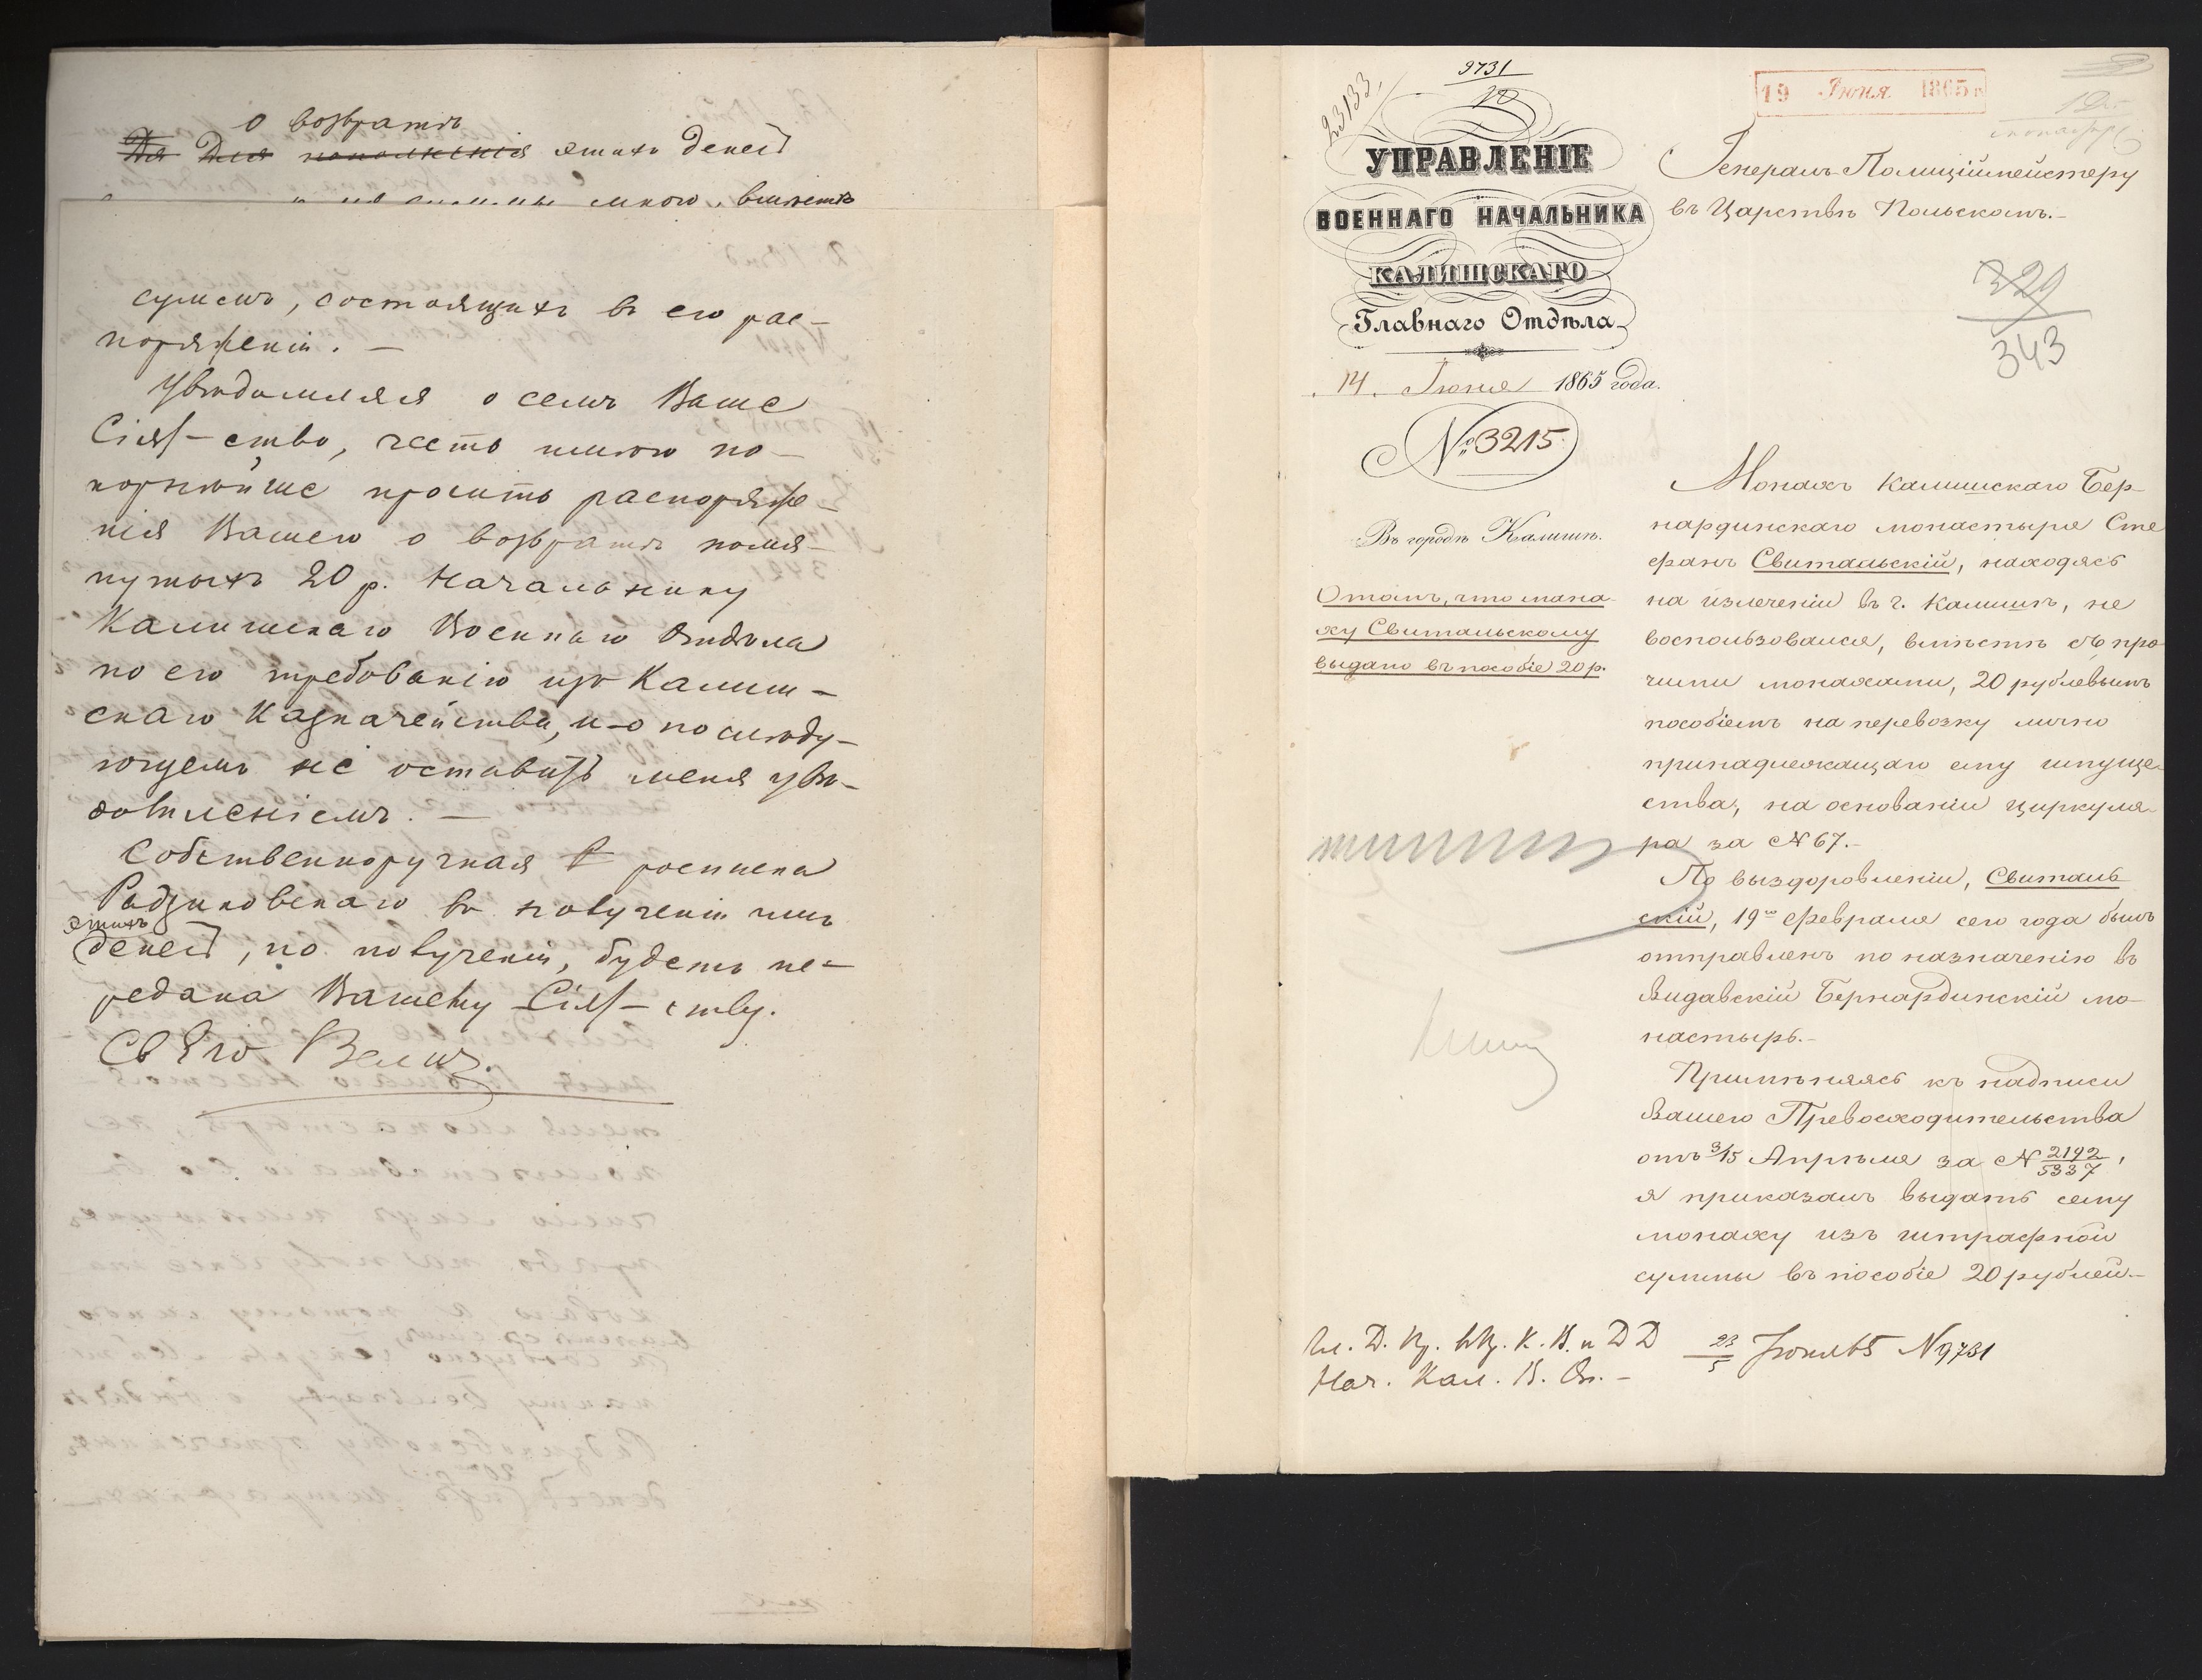 о возвратѣ
Для Для пополненія этихъ денегъ
сумемъ, состоящихъ въ его рас-
поряженіи. —
Увѣдомляя о семъ Ваше
Сіят-ство, честь имѣю по-
корнѣйше просить распоряже-
нія Вашего о возвратѣ помя-
нутыхъ 20 р. Начальнику
Калишскаго Военнаго Отдѣла
по его требованію изъ Калиш-
скаго Казначейства, и о послѣду-
ющемъ не оставить меня увѣ-
домленіемъ. —
Собственноручная росписка
Радзиковскаго въ полученіи имъ
этихъ
денегъ, по полученіи, будетъ пе-
редана Вашему Сіят-ству.
9731
10
23133
УПРАВЛЕНІЕ
ВОЕННАГО НАЧАЛЬНИКА
КАЛИШСКАГО
Главнаго Отдѣла
14 Іюня 1865 года.
№ 3215.
Въ городѣ Калишѣ.
О томъ, что мона-
ху Свитальскому
выдано въ пособіе 20 р.
19 Іюня 1865 г.
Генералъ-Полиціймейстеру
въ Царствѣ Польскомъ.-
329
343
Монахъ Калишскаго Бер-
нардинскаго монастыря Сте
фанъ Свитальскій, находясь
на излеченіи въ г. Калишѣ, не
воспользовался, вмѣстѣ съ про
чими монахами, 20 рублевымъ
пособіемъ на перевозку лично
принадлежащаго ему имуще
ства, на основаніи циркуля-
ра за № 67.-
По выздоровленіи, Свиталь
скій, 19го Февраля сего года былъ
отправленъ по назначенію въ
Видавскій Бернардинскій мо-
настырь.-
Примѣняясь къ надписи
Вашего Превосходительства
отъ 3/15 Апрѣля за № 2192/5337,
я приказалъ выдать сему
монаху изъ штрафной
суммы въ пособіе 20 рублей.-
23/5 Іюня № 9731
Нач. Кал. В. От. -